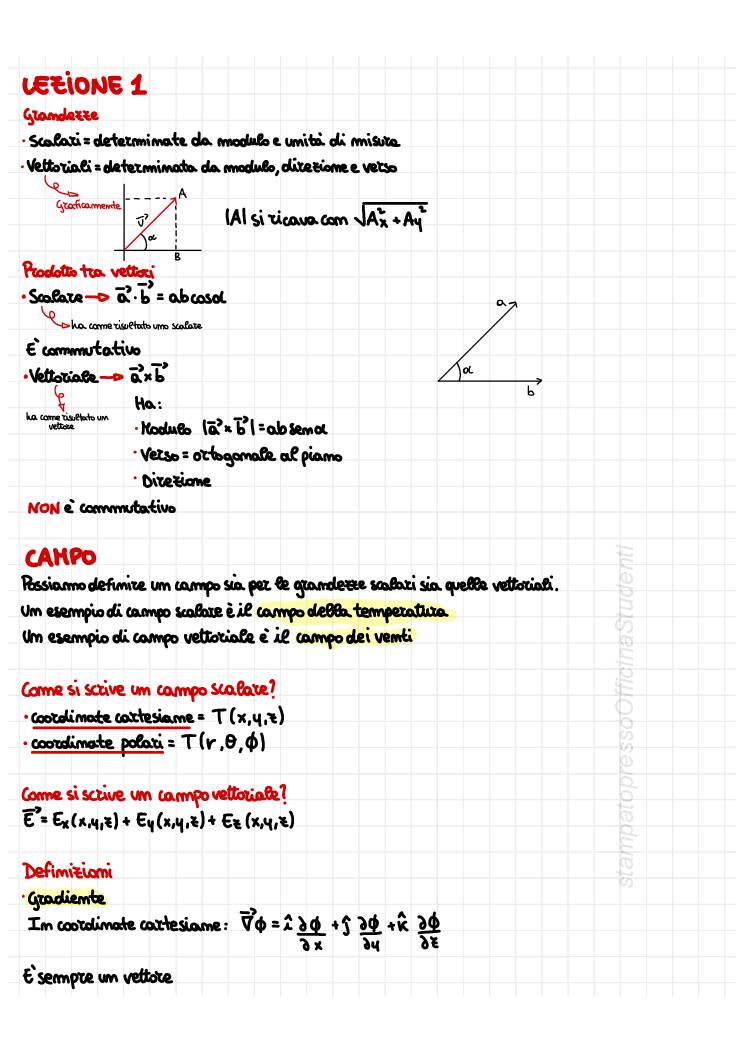 LEZIONE 1
Grandezze
· Scalari = determinate da modulo e unità di misura
· Vettoriali = determinata da modulo, direzione e verso
Graficamente
A
v⃗
α
B
|A| si ricava con √(Ax² + Ay²)
Prodotto tra vettori
· Scalare → a⃗ · b⃗ = ab cosα
ha come risultato uno scalare
È commutativo
· Vettoriale → a⃗ × b⃗
ha come risultato un
vettore
Ha:
· Modulo |a⃗ × b⃗| = ab senα
· Verso = ortogonale al piano
· Direzione
NON è commutativo
a
α
b
CAMPO
Possiamo definire un campo sia per le grandezze scalari sia quelle vettoriali.
Un esempio di campo scalare è il campo della temperatura
Un esempio di campo vettoriale è il campo dei venti
Come si scrive un campo scalare?
· coordinate cartesiane = T(x,y,z)
· coordinate polari = T(r,θ,ϕ)
Come si scrive un campo vettoriale?
E⃗ = Ex(x,y,z) + Ey(x,y,z) + Ez(x,y,z)
Definizioni
· Gradiente
In coordinate cartesiane: ∇⃗ϕ = î ∂ϕ/∂x + ĵ ∂ϕ/∂y + k̂ ∂ϕ/∂z
È sempre un vettore
stampatopressoOfficinaStudenti